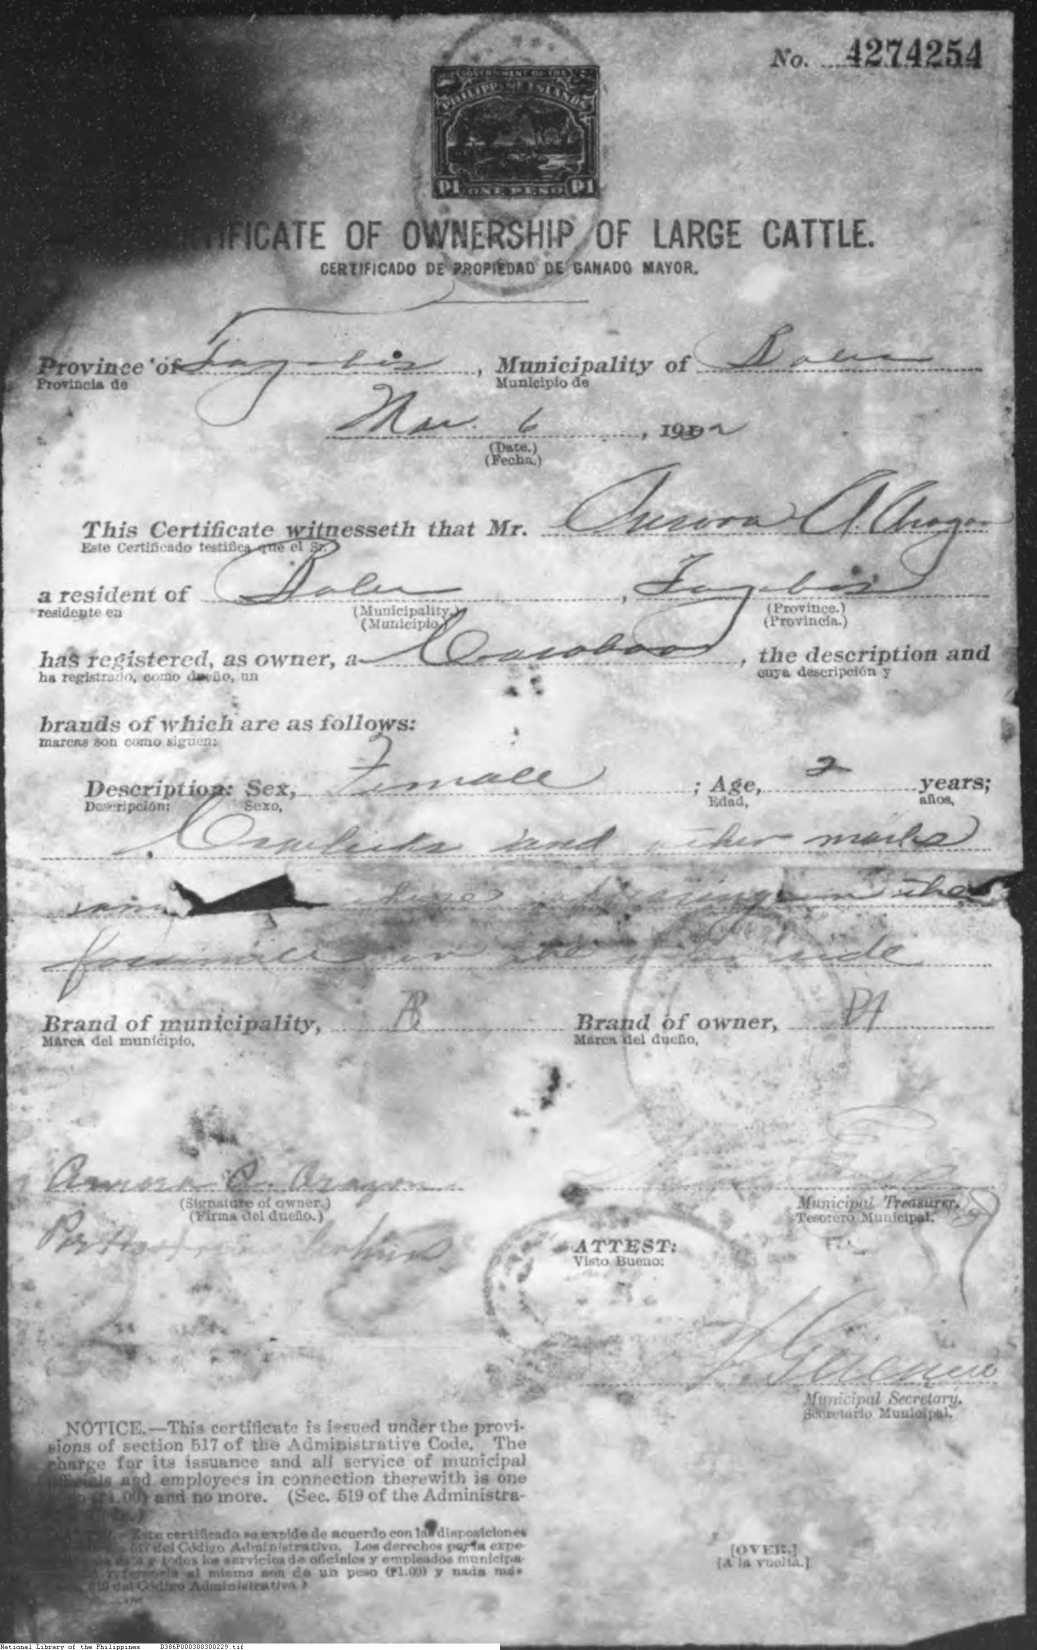 No. 4274254
GOVERNMENT OF THE
PHILIPPINE ISLANDS
P1 ONE PESO P1
CERTIFICATE OF OWNERSHIP OF LARGE CATTLE.
CERTIFICADO DE PROPIEDAD DE GANADO MAYOR.
Province of Tayabas, Municipality of Baler
Provincia de Municipio de
Mar. 6, 1922
(Date.)
(Fecha.)
This Certificate witnesseth that Mr. Aurora A. Aragon
Este Certificado testifica que el Sr.
a resident of Baler, Tayabas
residente en (Municipality.) (Province.)
(Municipio.) (Provincia.)
has registered, as owner, a Carabao, the description and
ha registrado, como dueño, un cuya descripción y
brands of which are as follows:
marcas son como siguen:
Description: Sex, Female; Age, 2 years;
Descripción: Sexo, Edad, años,
Cowlicks and other marks
same those in the
facsimile on the side
Brand of municipality, B Brand of owner,
Marca del municipio, Marca del dueño,
Aurora A. Aragon
(Signature of owner.) Municipal Treasurer.
(Firma del dueño.) Tesorero Municipal.
ATTEST:
Visto Bueno:
Municipal Secretary.
Secretario Municipal.
NOTICE.—This certificate is issued under the provi-
sions of section 517 of the Administrative Code. The
charge for its issuance and all service of municipal
officials and employees in connection therewith is one
(₱1.00) and no more. (Sec. 519 of the Administra-
Este certificado se expide de acuerdo con las disposiciones
del Código Administrativo. Los derechos por la expe-
y todos los servicios de oficiales y empleados municipa-
al mismo son de un peso (₱1.00) y nada más
519 del Código Administrativo.)
[OVER.]
[A la vuelta.]
National Library of the Philippines D386P000300300229.tif